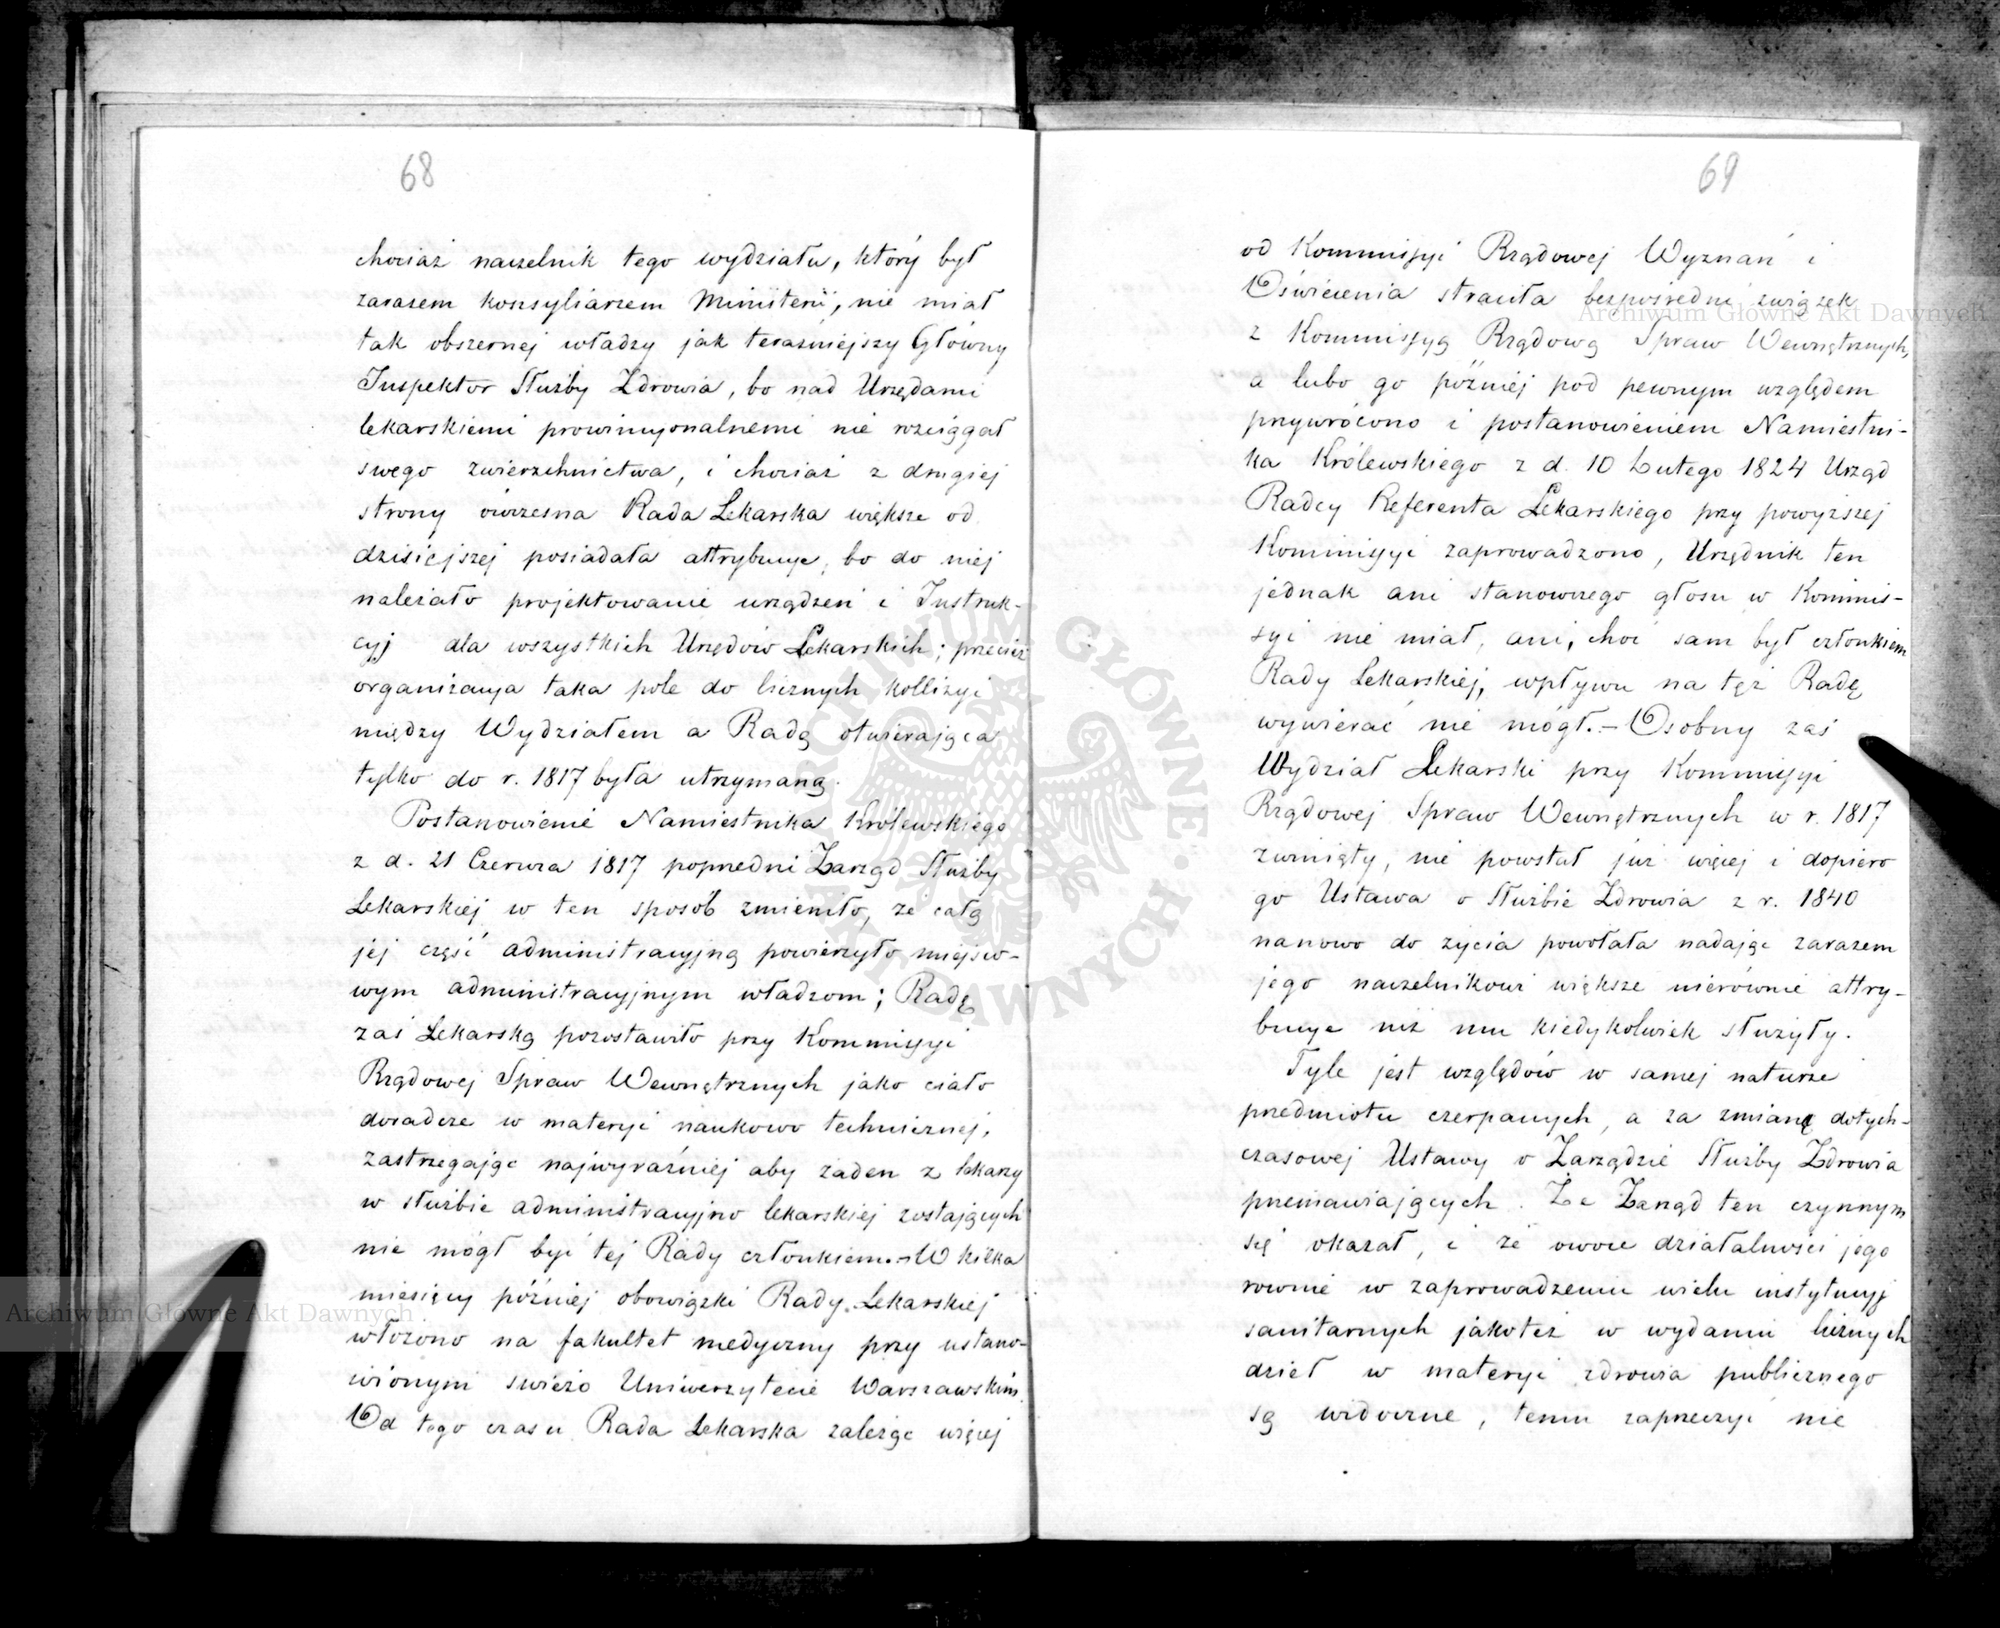 68
chociaż naczelnik tego wydziału, który był
zarazem konsyliarzem Ministerii, nie miał
tak obszernej władzy jak teraźniejszy Główny
Inspektor Służby Zdrowia, bo nad Urzędami
lekarskiemi prowincyonalnemi nie rozciągał
swego zwierzchnictwa, i chociaż z drugiej
strony ówczesna Rada Lekarska większe od
dzisiejszej posiadała attrybucye, bo do niej
należało projektowanie urządzeń i Instruk-
cyj dla wszystkich Urzędów Lekarskich; przecież
organizacya taka pole do licznych kollizyi
między Wydziałem a Radą otwierająca
tylko do r. 1817 była utrzymaną.
Postanowienie Namiestnika Królewskiego
z d. 21 Czerwca 1817 poprzedni Zarząd Służby
Lekarskiej w ten sposób zmieniło, że całą
jej część administracyjną powierzyło miejsco-
wym administracyjnym władzom; Radę
zaś Lekarską pozostawiło przy Kommissyi
Rządowej Spraw Wewnętrznych jako ciało
doradcze w materyi naukowo technicznej,
zastrzegając najwyraźniej aby żaden z lekarzy
w służbie administracyjno lekarskiej zostających
nie mógł być tej Rady członkiem.- W kilka
miesięcy później obowiązki Rady Lekarskiej
włożono na fakultet medyczny przy ustano-
wionym świeżo Uniwersytecie Warszawskim.
Od tego czasu Rada Lekarska zależąc więcej
69
od Kommissyi Rządowej Wyznań i
Oświecenia straciła bezpośredni związek
z Kommissyą Rządową Spraw Wewnętrznych,
a lubo go później pod pewnym względem
przywrócono i postanowieniem Namiestni-
ka Królewskiego z d. 10 Lutego 1824 Urząd
Radcy Referenta Lekarskiego przy powyższej
Kommissyi zaprowadzono, Urzędnik ten
jednak ani stanowczego głosu w Kommis-
syi nie miał, ani, choć sam był członkiem
Rady Lekarskiej, wpływu na tęż Radę
wywierać nie mógł.- Osobny zaś
Wydział Lekarski przy Kommissyi
Rządowej Spraw Wewnętrznych w r. 1817
zwinięty, nie powstał już więcej i dopiero
go Ustawa o Służbie Zdrowia z r. 1840
nanowo do życia powołała nadając zarazem
jego naczelnikowi większe nierównie attry-
bucye niż mu kiedykolwiek służyły.
Tyle jest względów w samej naturze
przedmiotu czerpanych, a za zmianę dotych-
czasowej Ustawy o Zarządzie Służby Zdrowia
przemawiających. Że Zarząd ten czynnym
się okazał, i że owoce działalności jego
równie w zaprowadzeniu wielu instytucyj
sanitarnych jakoteż w wydaniu licznych
dzieł w materyi zdrowia publicznego
są widoczne, temu zaprzeczyć nie
Archiwum Główne Akt Dawnych
Archiwum Główne Akt Dawnych
ARCHIWUM GŁÓWNE AKT DAWNYCH